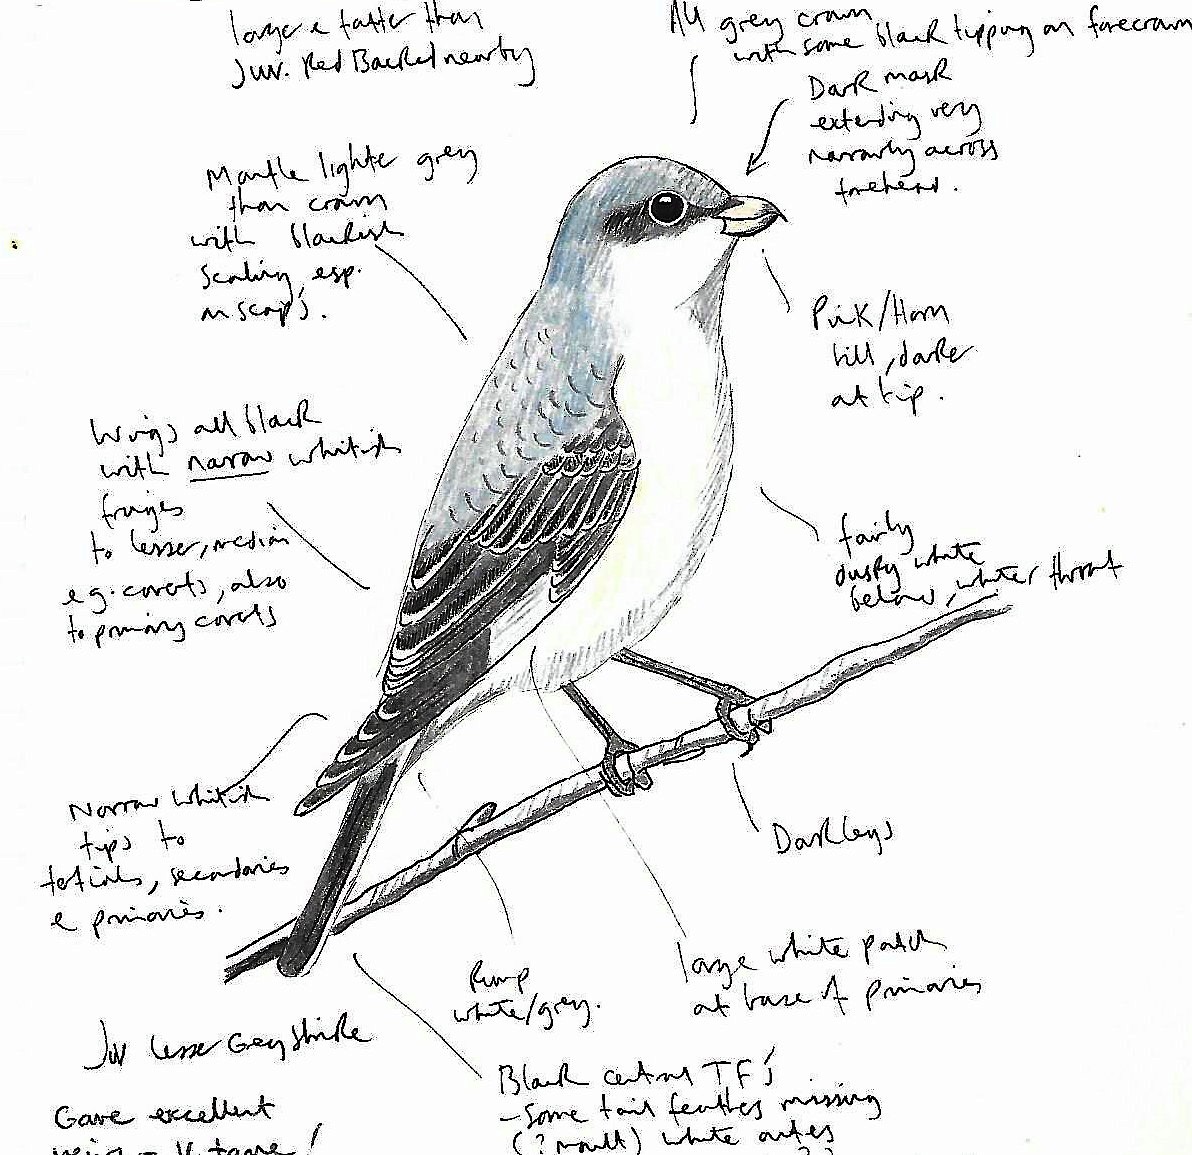 large & fatter than
Juv. Red Backed nearby
All grey crown
with some black tipping on forecrown
Dark mask
extending very
narrowly across
forehead.
Mantle lighter grey
than crown
with blackish
scaling, esp.
on scap's.
Pink/Horn
bill, darker
at tip.
Wings all black
with narrow whitish
fringes
to lesser, median
& g. coverts, also
to primary coverts
fairly
dusky white
below, whiter throat
Narrow whitish
tips to
tertials, secondaries
& primaries.
Dark legs
large white patch
at base of primaries
Rump
white/grey.
Juv Lesser Grey Shrike
Black central TF's
- Some tail feathers missing
(? moult) white outer
Gave excellent
views - V. tame!
??